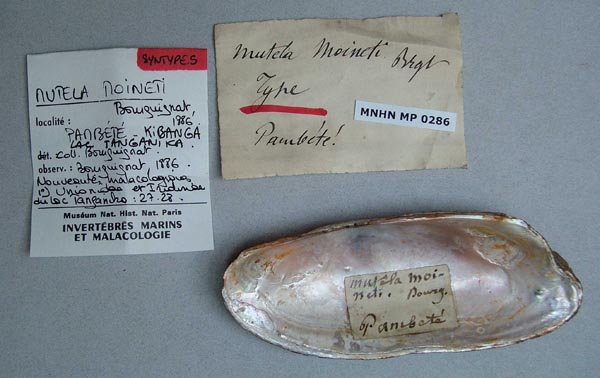 SYNTYPES
MUTELA MOINETI
Bourguignat,
localité : 1886
PAMBÉTÉ - KIBANGA
LAC TANGANIKA.
dét. Coll. Bourguignat.
observ. : Bourguignat 1886.
Nouveautés malacologiques
1°) Unionidae et Iridinidae
du lac Tanganika : 27-28.
Muséum Nat. Hist. Nat. Paris
INVERTÉBRÉS MARINS
ET MALACOLOGIE
Mutela Moineti Brgt
Type
MNHN MP 0286
Pambété!
mutela moi-
neti. Bourg.
Pambété